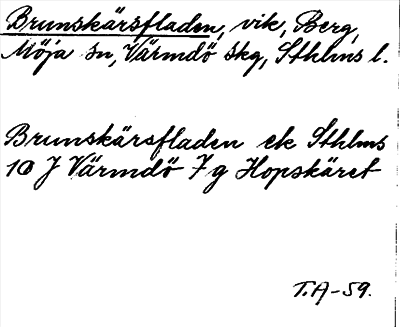 Brunskärsfladen, vik, Berg,
Möja sn, Värmdö skg, Sthlms l.
Brunskärsfladen ek Sthlms
10 J Värmdö 7 g Hopskäret
T.A-59.